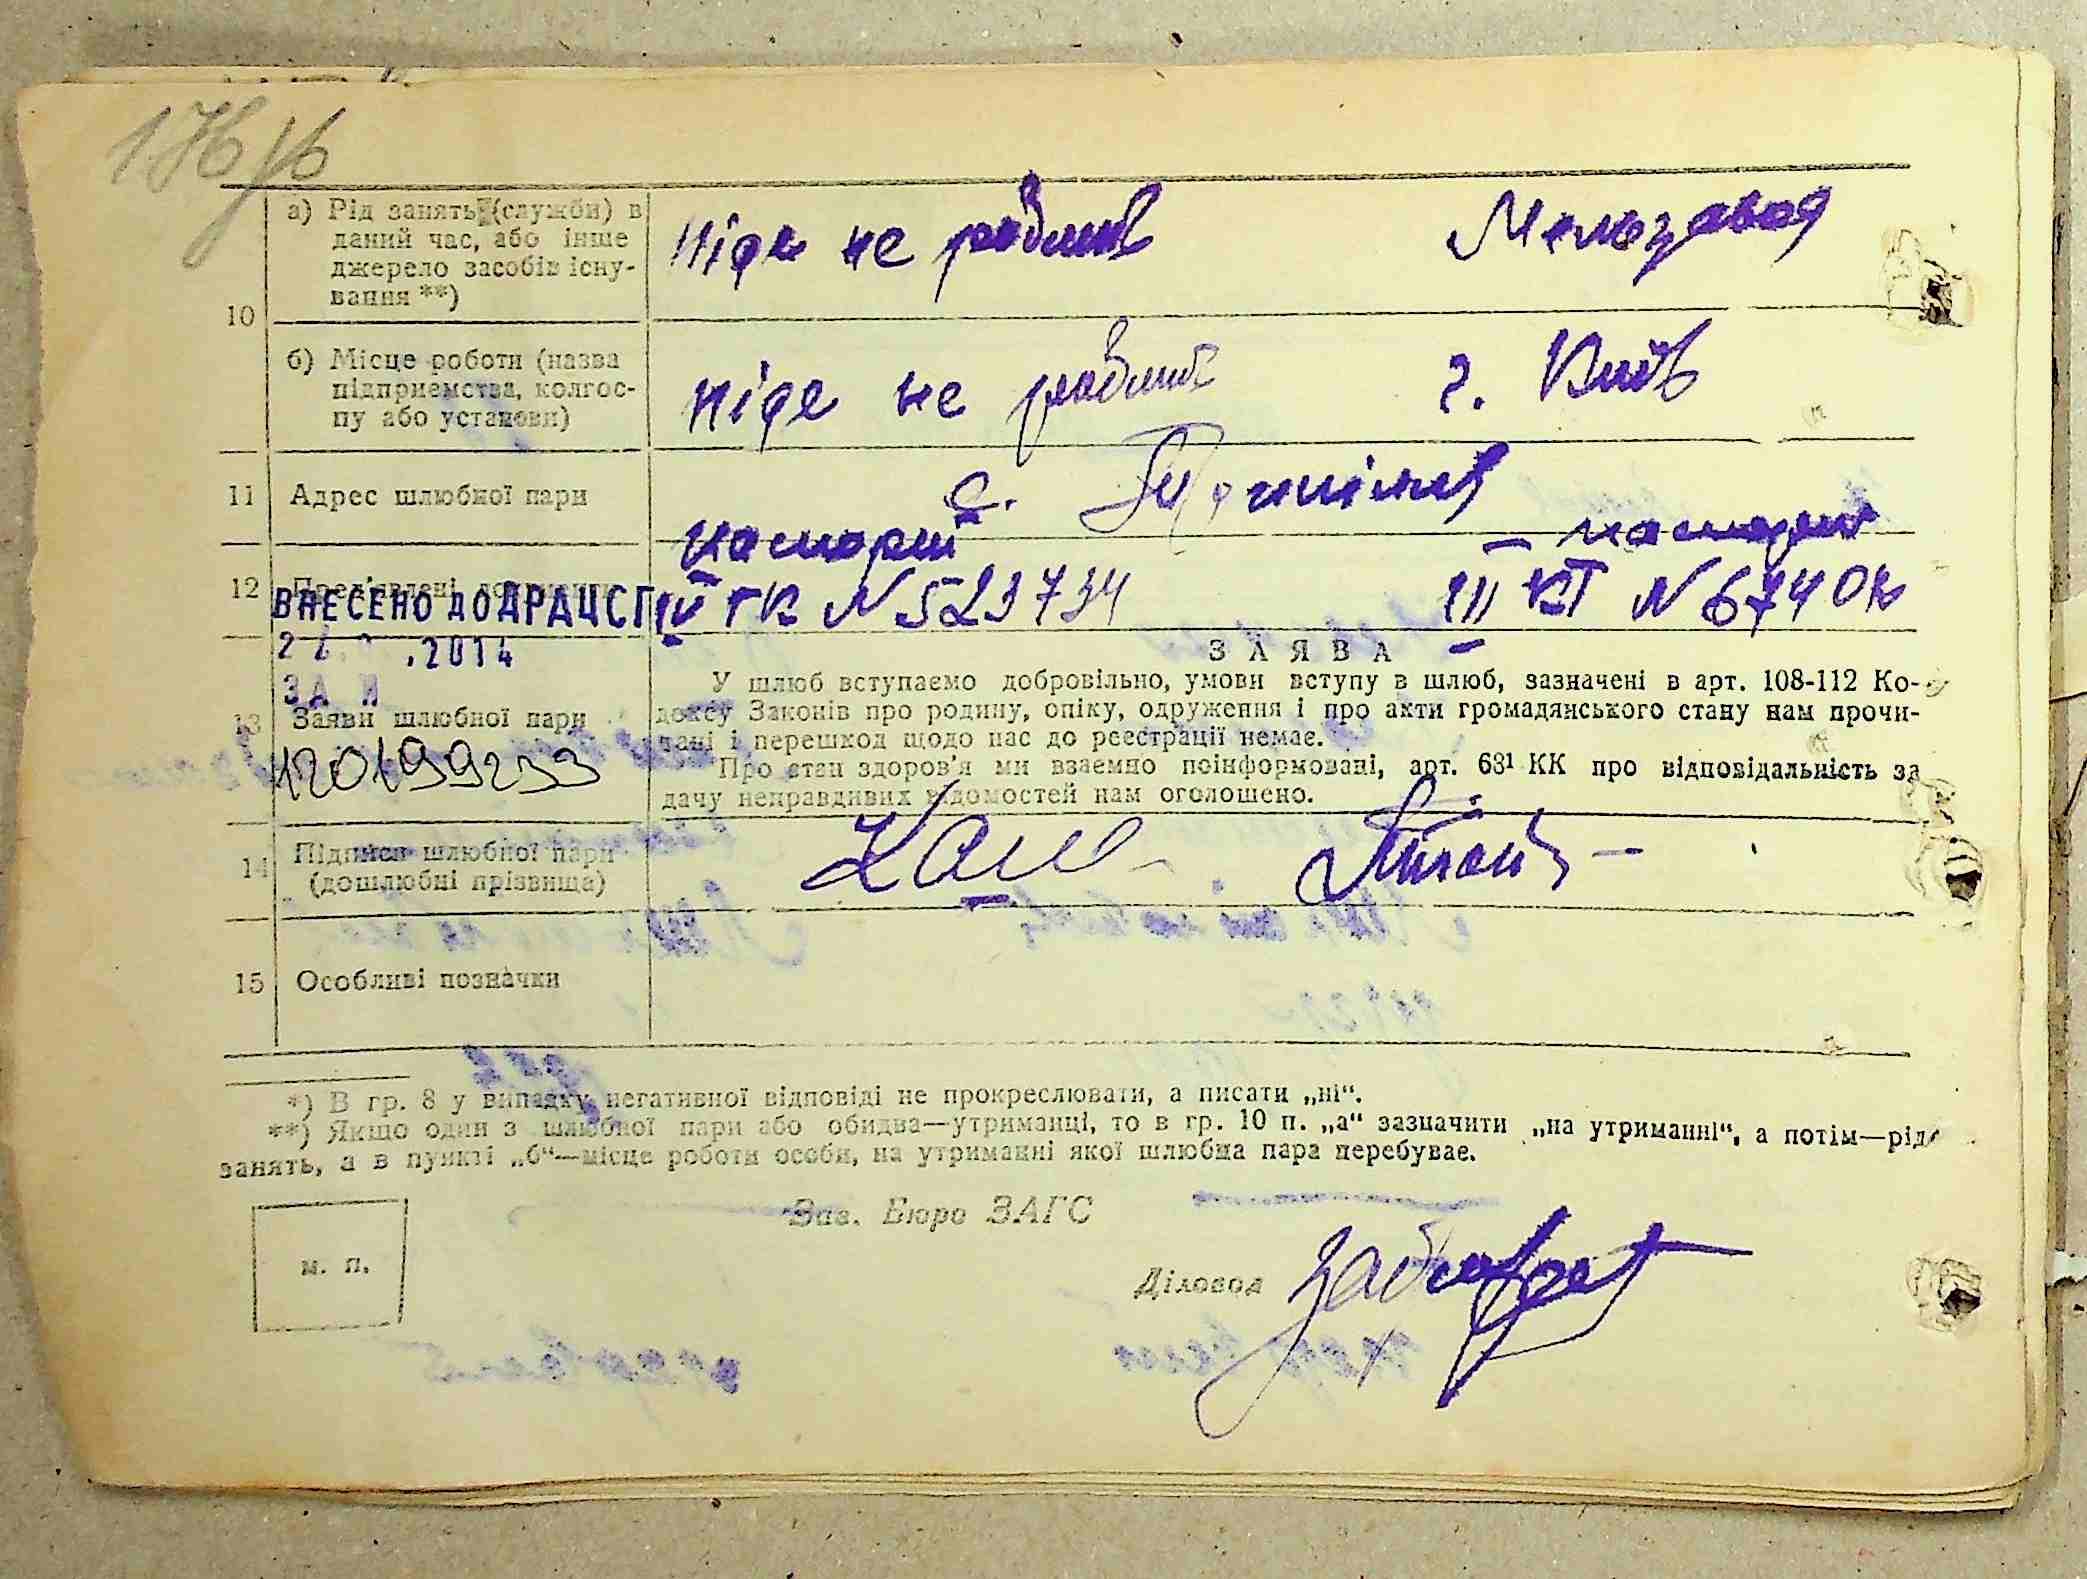 176
а) Рід занять (служби) в
даний час, або інше
джерело засобів існу-
вання **)
Ніде не робить
10
б) Місце роботи (назва
підприємства, колгос-
пу або установи)
ніде не робить г. Київ
11 Адрес шлюбної пари
с.
паспорт паспорт
12 Пред'явлені документи
ВНЕСЕНО ДО ДРАЦСГ
IV ГК N 523734 III КТ N 67
.2014
ЗА И
13 Заяви шлюбної пари
12019923
ЗАЯВА
У шлюб вступаємо добровільно, умови вступу в шлюб, зазначені в арт. 108-112 Ко-
дексу Законів про родину, опіку, одруження і про акти громадянського стану нам прочи-
тані і перешкод щодо нас до реєстрації немає.
Про стан здоров'я ми взаємно поінформовані, арт. 68¹ КК про відповідальність за
дачу неправдивих відомостей нам оголошено.
14 Підписи шлюбної пари
(дошлюбні прізвища)
15 Особливі позначки
*) В гр. 8 у випадку негативної відповіді не прокреслювати, а писати „ні“.
**) Якщо один з шлюбної пари або обидва—утриманці, то в гр. 10 п. „а“ зазначити „на утриманні“, а потім—рід
занять, а в пункті „б“—місце роботи особи, на утриманні якої шлюбна пара перебуває.
Зав. Бюро ЗАГС
м. п.
Діловод